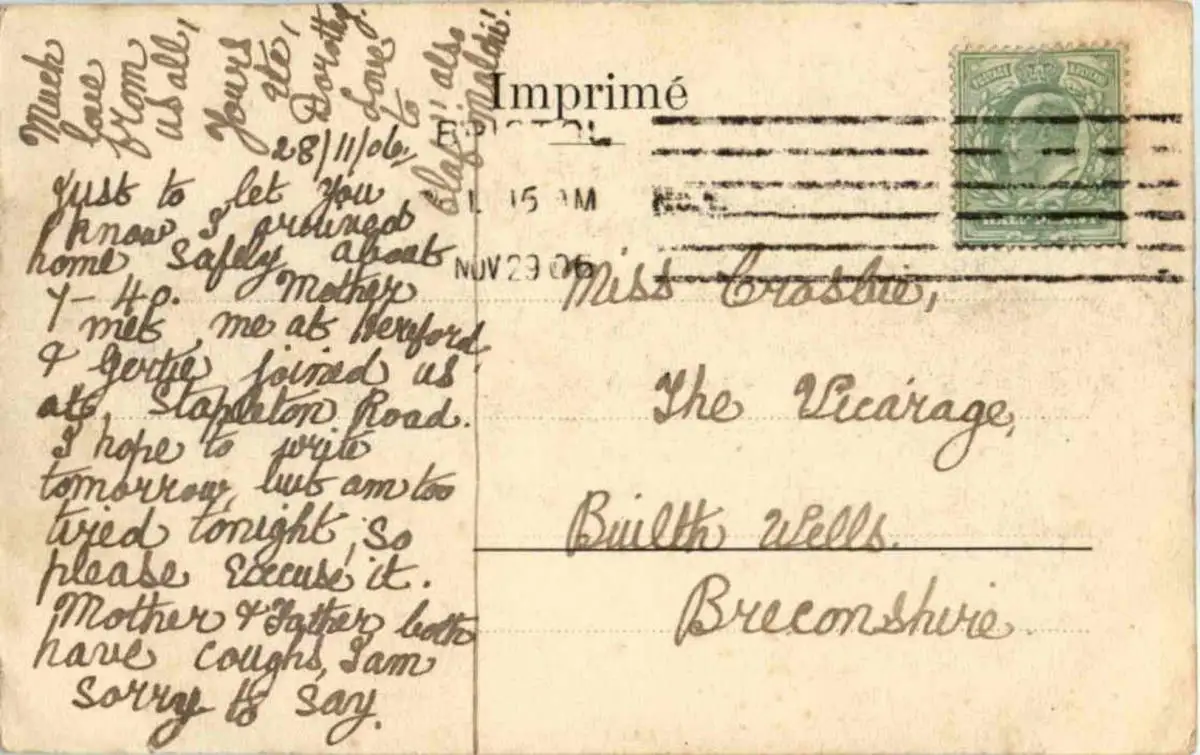 28/11/06,
Just to let you
know I arrived
home safely about
7-40. Mother
met me at Hereford,
& Gertie joined us
at Stapleton Road.
I hope to write
tomorrow, but am too
tired tonight, so
please excuse it.
Mother & Father both
have coughs, I am
sorry to say.
Much
love
from
us all,
Yours
Dorothy.
Love
to
also
Imprimé
BRISTOL
15 AM
NOV 29 06
No. 1.
POSTAGE
HALFPENNY
Miss Crosbie,
The Vicarage,
Builth Wells.
Breconshire